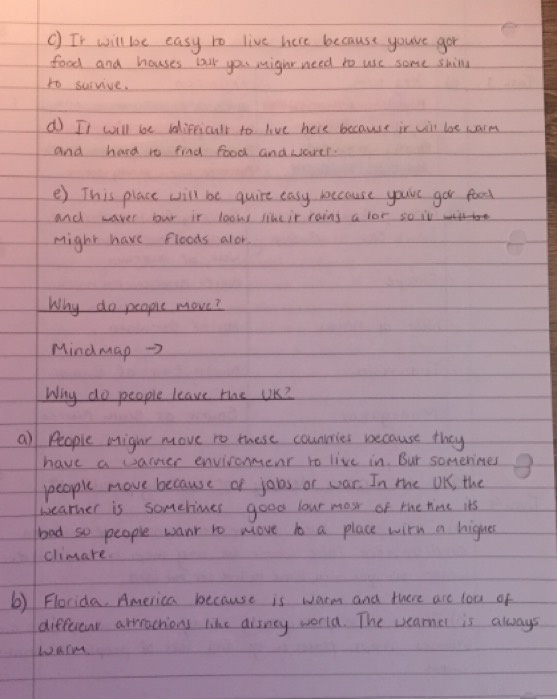 c) It will be easy to live here because youve got
food and houses but you might need to use some skills
to survive.
d) It will be difficult to live here because it will be warm
and hard to find food and water.
e) This place will be quite easy because youve got food
and water but it looks like it rains a lot so it will be
might have floods alot.
Why do people move?
Mindmap →
Why do people leave the UK?
a) People might move to these countries because they
have a warmer environment to live in. But sometimes
people move because of jobs or war. In the UK, the
weather is sometimes good but most of the time its
bad so people want to move to a place with a higher
climate.
b) Florida. America because is warm and there are lots of
different attractions like disney world. The weather is always
warm.